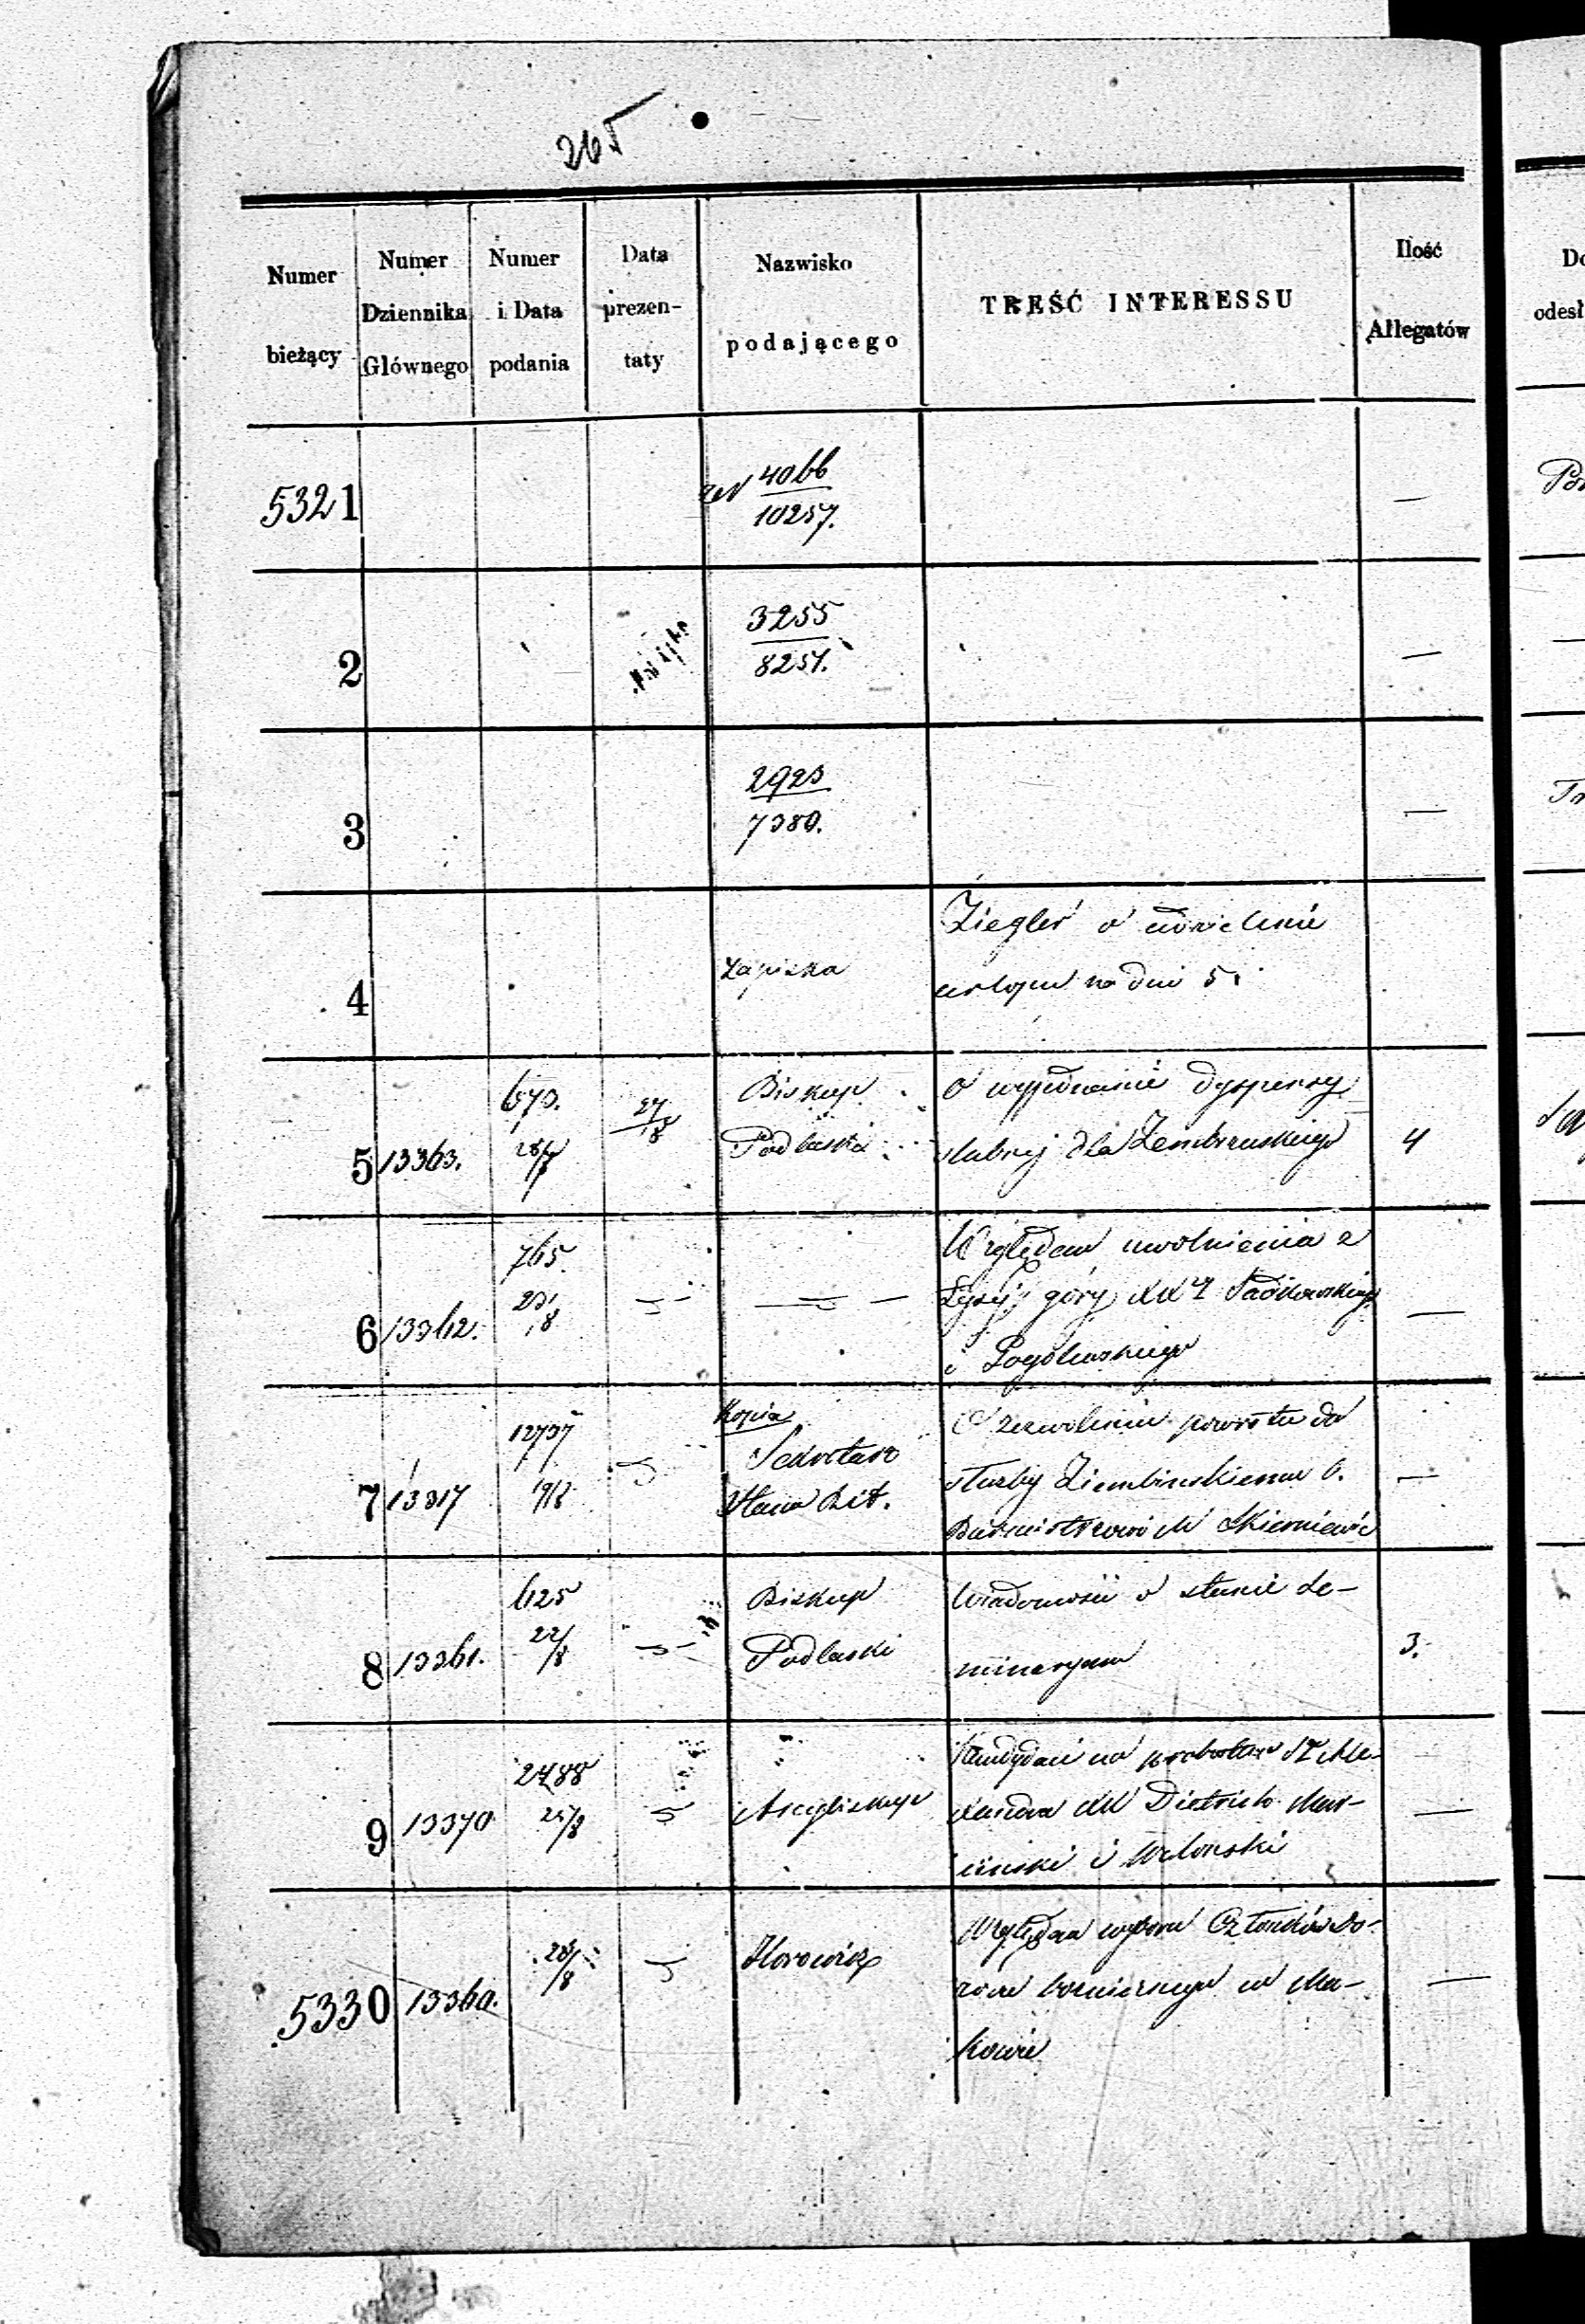 265
Numer bieżący
Numer Dziennika Głównego
Numer i Data podania
Data prezen-taty
Nazwisko podającego
TREŚĆ INTERESSU
Ilość Allegatów
Do
odesł
5321
4066
10257.
—
2
3255
8257.
—
3
2923
7380.
—
4
Zapiska
Ziegler o udzielenie
urlopu na dni 5
5 13363.
673.
27/8
Biskup
Podlaski
O wyjednanie dyspensy
ślubnej dla Zembrzuskiego
4
6 13362.
765.
23/8
Względem uwolnienia z
Łysej góry XX Sadkowskiego
i
—
7 13317
12737
19/8
Kopia
Sekretarz
Stanu
O zezwolenie powrotu do
służby Ziembinskiemu b.
Burmistrzowi M Skierniewic
—
8 13361.
625
22/8
Biskup
Podlaski
Wiadomości o stanie Se-
minaryum
3.
9 13370
2488
25/8
Arcybiskup
Kandydaci na probostwo
XX Dietrich Mar-
ciński i
—
5330 13360.
28/8
Horowicz
Względem wyboru Członków Do-
zoru bożniczego w Ma-
kowie
—